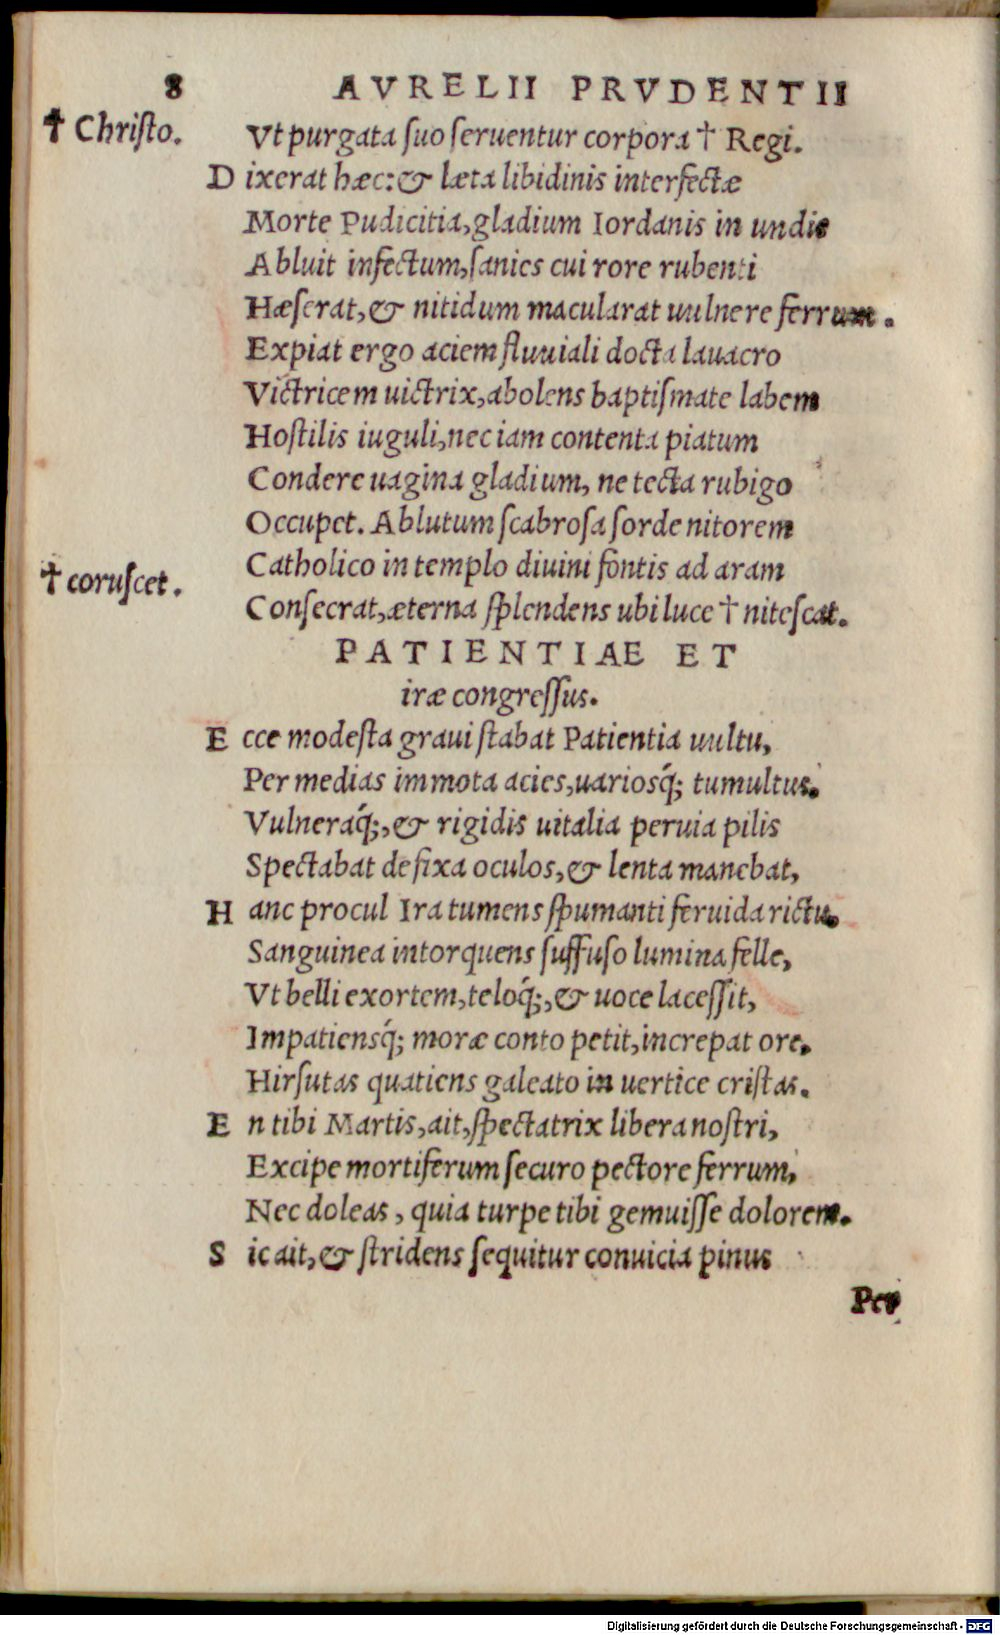 8 AVRELII PRVDENTII
† Chriſto.
Vt purgata ſuo ſeruentur corpora † Regi.
D ixerat hæc: & læta libidinis interfectæ
Morte Pudicitia, gladium Iordanis in undis
Abluit infectum, ſanies cui rore rubenti
Hæſerat, & nitidum macularat uulnere ferrum.
Expiat ergo aciem fluuiali docta lauacro
Victricem uictrix, abolens baptiſmate labem
Hoſtilis iuguli, nec iam contenta piatum
Condere uagina gladium, ne tecta rubigo
Occupet. Ablutum ſcabroſa ſorde nitorem
Catholico in templo diuini fontis ad aram
† coruſcet.
Conſecrat, æterna ſplendens ubi luce † niteſcat.
PATIENTIAE ET
iræ congreſſus.
E cce modeſta graui ſtabat Patientia uultu,
Per medias immota acies, uarioſq́; tumultus.
Vulneraq́;, & rigidis uitalia peruia pilis
Spectabat defixa oculos, & lenta manebat,
H anc procul Ira tumens ſpumanti feruida rictu.
Sanguinea intorquens ſuffuſo lumina felle,
Vt belli exortem, teloq́;, & uoce laceſſit,
Impatiensq́; moræ conto petit, increpat ore.
Hirſutas quatiens galeato in uertice criſtas.
E n tibi Martis, ait, ſpectatrix libera noſtri,
Excipe mortiferum ſecuro pectore ferrum,
Nec doleas, quia turpe tibi gemuiſſe dolorem.
S ic ait, & ſtridens ſequitur conuicia pinus
Per
Digitalisierung gefördert durch die Deutsche Forschungsgemeinschaft - DFG